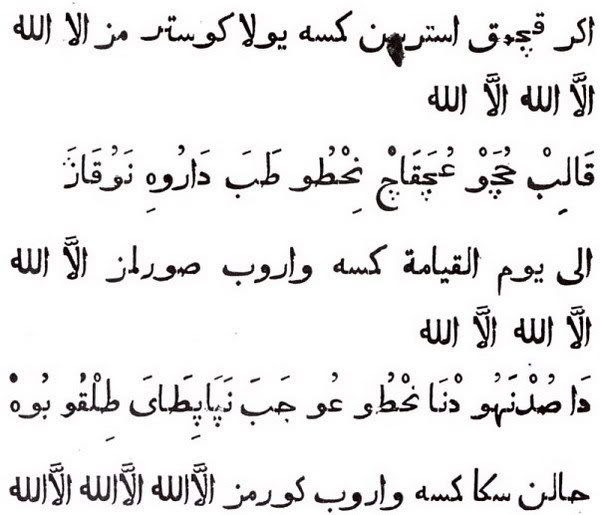 اكر قچمق استرسن كمسه يولا كوستر مز الا الله
الَّا الله الَّا الله
قَالِبْ حُجَوْ عُچَقَاچْ نِحْطُو طَبَ دَارُوهِ نَوُقَازَ
الى يوم القيامة كمسه واروب صورلمز الَّا الله
الَّا الله الَّا الله
دَا صُدْنَهُو دْنَا نحْطُو عُو جَبَ نَپَاپِطَاىَ طِلْقُو بُوهْ
حالن سكا كمسه واروب كورمز الَّاالله الَّاالله الَّاالله